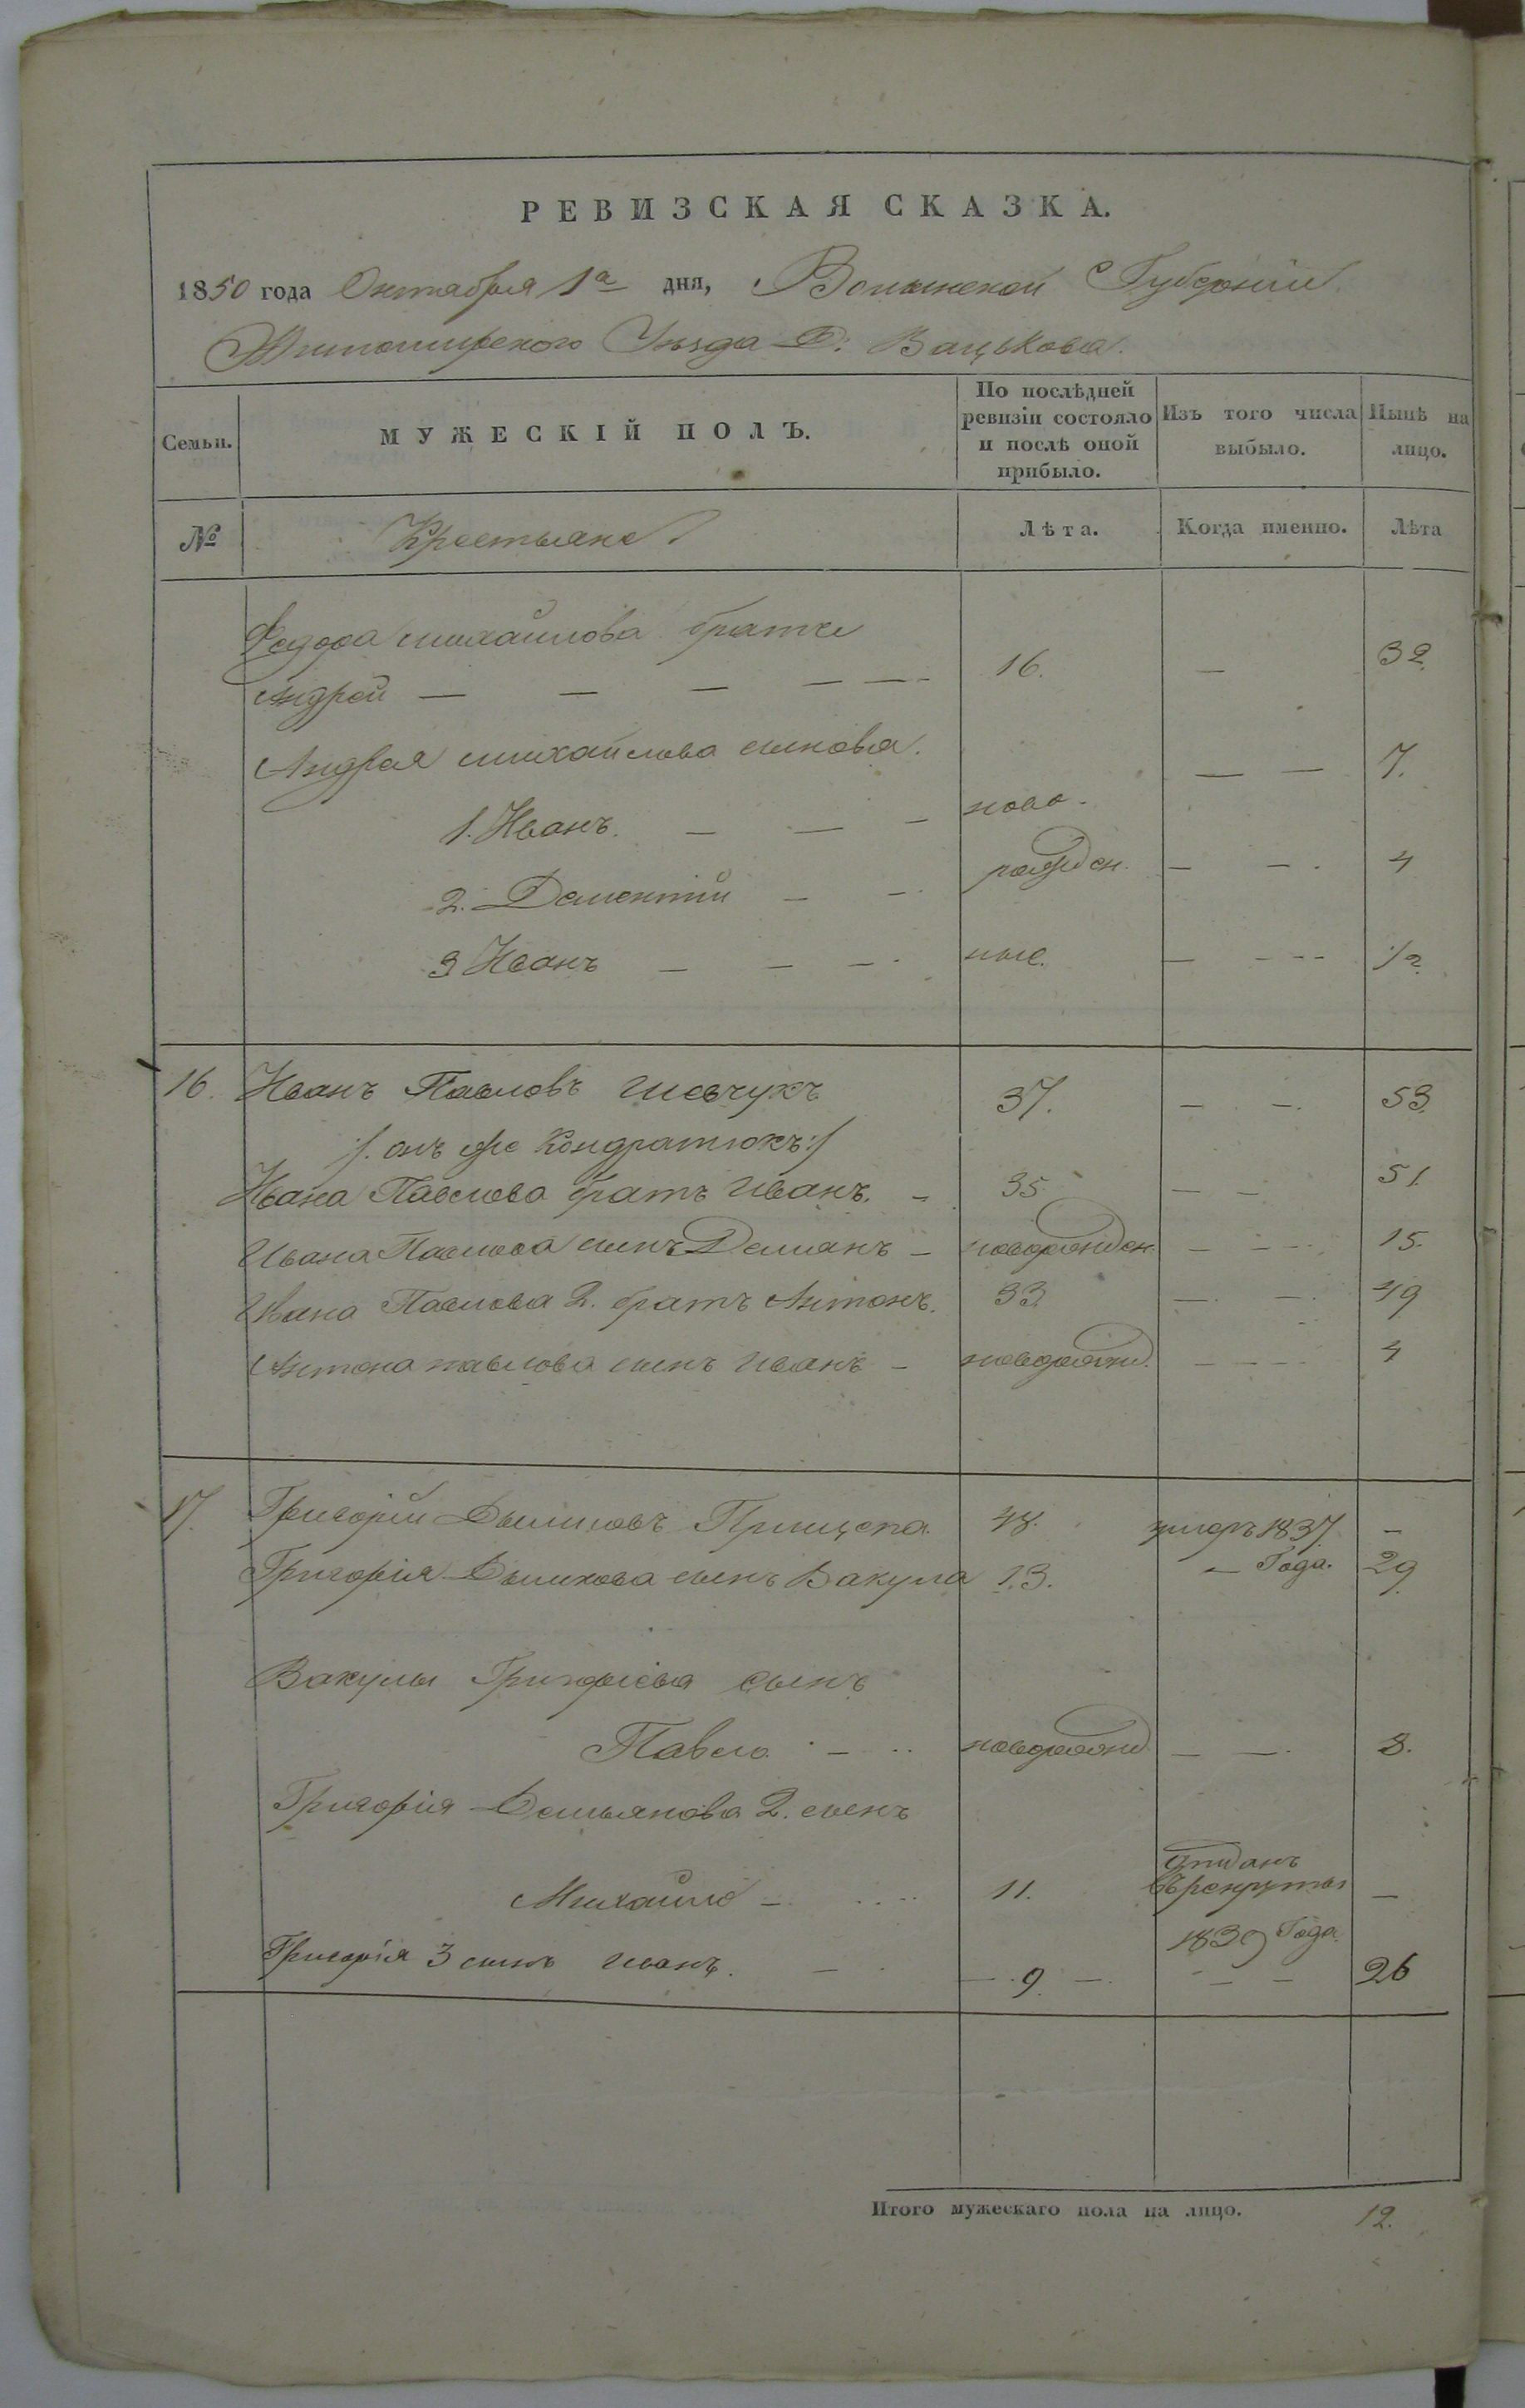 РЕВИЗСКАЯ СКАЗКА.
1850 года Октября 1го дня, Волынской Губернии
Житомирского Уезда Д: Вацькова.
Семьи. МУЖЕСКІЙ ПОЛЪ. По послѣдней ревизіи состояло и послѣ оной прибыло. Изъ того числа выбыло. Нынѣ на лицо.
№ Крестьяне. Лѣта. Когда именно. Лѣта
Федора михайлова братъ
Андрей — — — — — 16. — 32.
Андрея михайлова сыновья.
1. Иванъ. — — — ново- — — 7.
2. Дементий — — рожден. — — 4
3 Иванъ — — — ные. — — 1/2
16. Иванъ Павловъ Шевчукъ 37. — — 53.
/. онъ же Кондратюкъ:/
Ивана Павлова братъ Иванъ. — 35. — — 51.
Ивана Павлова сынъ Демианъ — новорожден. — — 15.
Ивана Павлова 2. братъ Антонъ. 33. — — 49
Антона павлова сынъ Иванъ — новорожд. — — 4
17. Григорій Прищепа 48. умеръ 1837. —
Григорія сынъ Вакула 13. — Года. 29.
Вакулы Григориева сынъ
Павло. — новорожд. — — 8.
Григорія Демьянова 2. сынъ
Михайло — 11. отданъ въ рекруты —
1839 Года.
Григорія 3 сынъ Иванъ. — — 9. — — — 26
Итого мужескаго пола на лицо. 12.